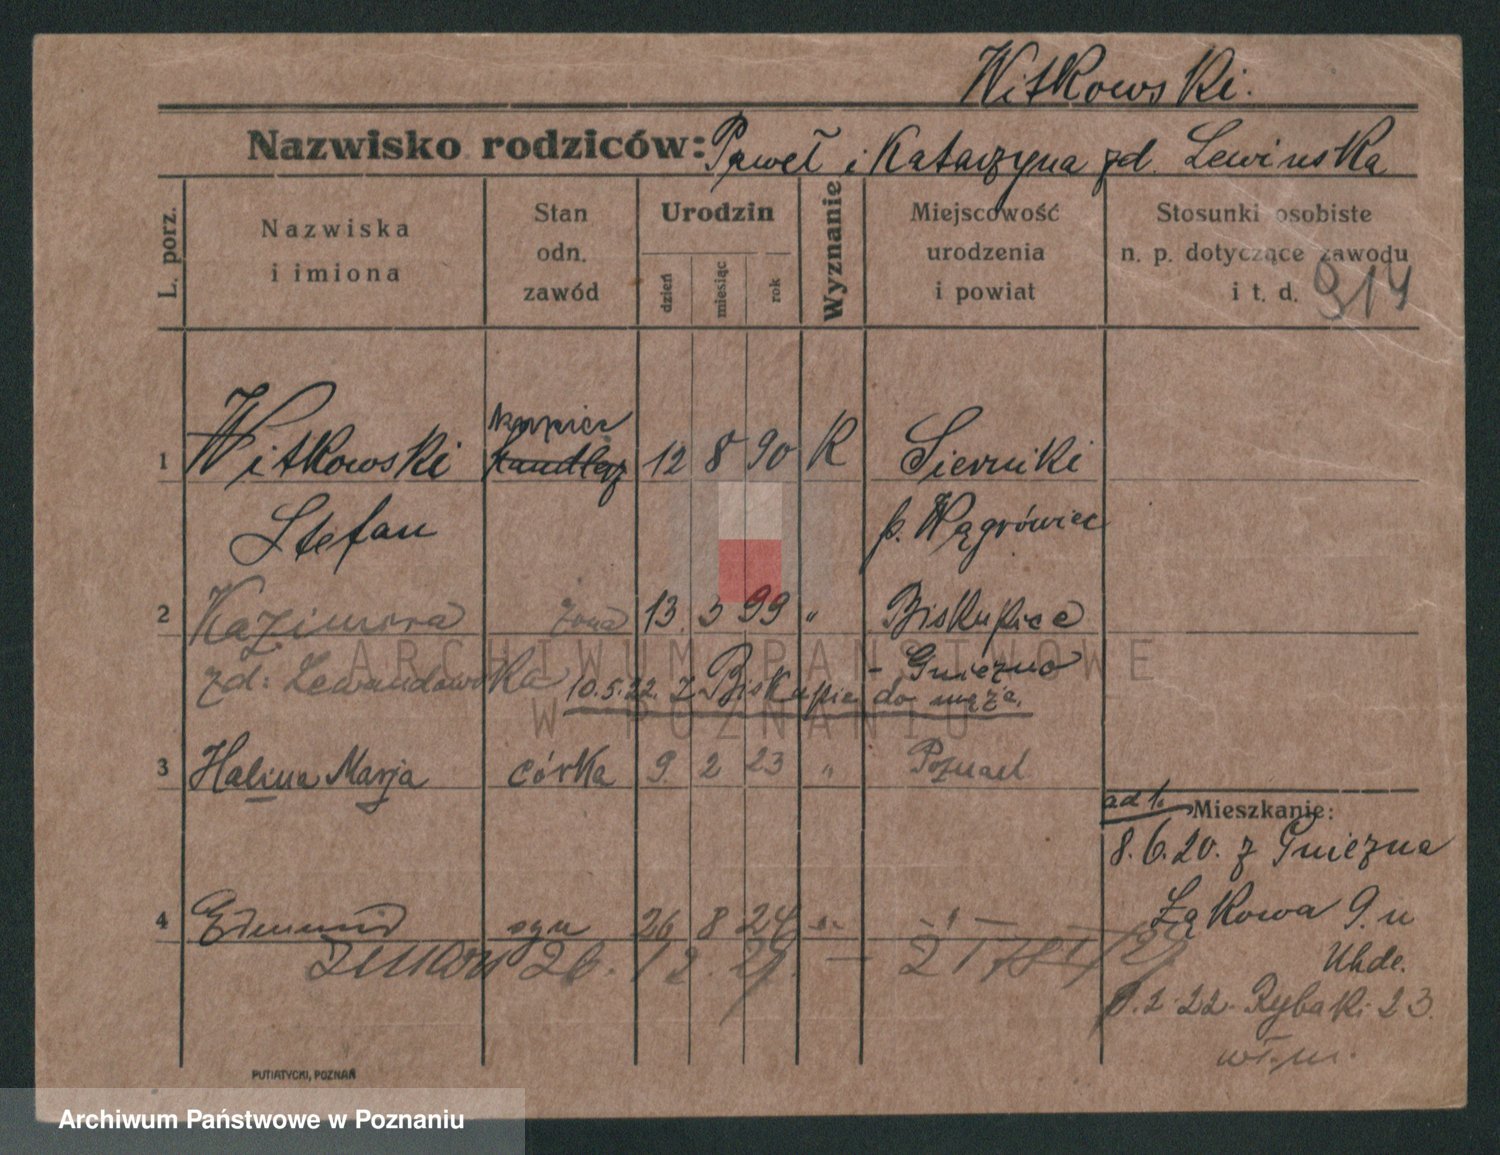 Witkowski.
Nazwisko rodziców: Paweł i Katarzyna zd. Lewińska
L. porz.
Nazwiska i imiona
Stan odn. zawód
Urodzin
dzień
miesiąc
rok
Wyznanie
Miejscowość urodzenia i powiat
Stosunki osobiste n. p. dotyczące zawodu i t. d.
914
kupiec
1 Witkowski handlarz 12 8 90 K Sierniki
Stefan p. Wągrówiec
2 Kazimiera żona 13 3 99 " Biskupice
zd: Lewandowska - Gniezno
10.5.22. z Biskupic do męża.
3 Halina Marja córka 9 2 23 " Poznań
ad 1. Mieszkanie:
8.6.20. z Gniezna
Łąkowa 9. u
Uhde.
4 Edmund syn 26 8 24 -"- - " -
zmarł 26. 12. 29. —
8.2.22. Rybaki 23.
PUTIATYCKI, POZNAŃ
ARCHIWUM PAŃSTWOWE
W POZNANIU
Archiwum Państwowe w Poznaniu